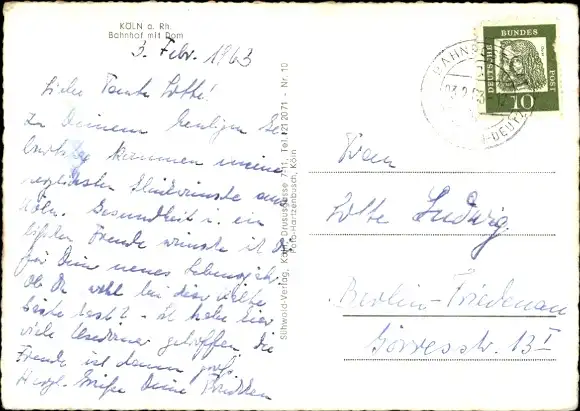 KÖLN a. Rh.
Bahnhof mit Dom
3. Febr. 1963
Liebe Tante Lotte!
Zu Deinem heutigen Ge
burtstag kommen meine
herzlichsten Glückwünsche aus
Köln. Gesundheit u. ein
Freude wünsche ich Dir
für Dein neues Lebensjahr.
Ob Du wohl bei dieser Kälte
hast? - Ich habe hier
viele getroffen, die
Freude ist dann groß.
Herzl. Grüße Deine
Stihwold-Verlag, Köln, Drususgasse 7-11, Tel. 21 20 71 - Nr. 10
Foto-Hartzenbusch, Köln
DEUTSCHE BUNDES POST
10
BAHNPOST
-3.2.63
Frau
Lotte Ludwig
Berlin-Friedenau
Görresstr. 13 I